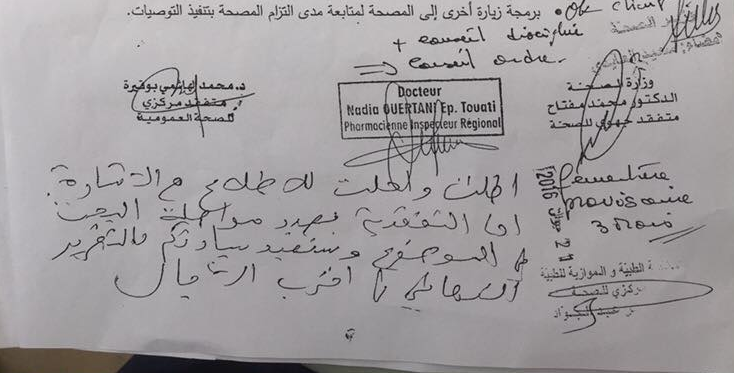 • برمجة زيارة أخرى إلى المصحة لمتابعة مدى التزام المصحة بتنفيذ التوصيات.
client
+ conseil discipline
⇒ Conseil ordre.
د. محمد الهاشمي بوقيرة
متفقد مركزي
للصحة العمومية
Docteur
Nadia OUERTANI Ep. Touati
Pharmacienne Inspecteur Régional
وزارة الصحة
الدكتور محمد مفتاح
متفقد جهوي للصحة
اطلعت وأحلت للاطلاع مع الإشارة
أن التفقدية بصدد مواصلة البحث
في الموضوع وستفيد سيادتكم بالتقرير
النهائي في أقرب الآجال
Fermeture
provisoire
3 mois
21 2016
الطبية و الموازية للطبية
مركزي للصحة
عبد الجواد